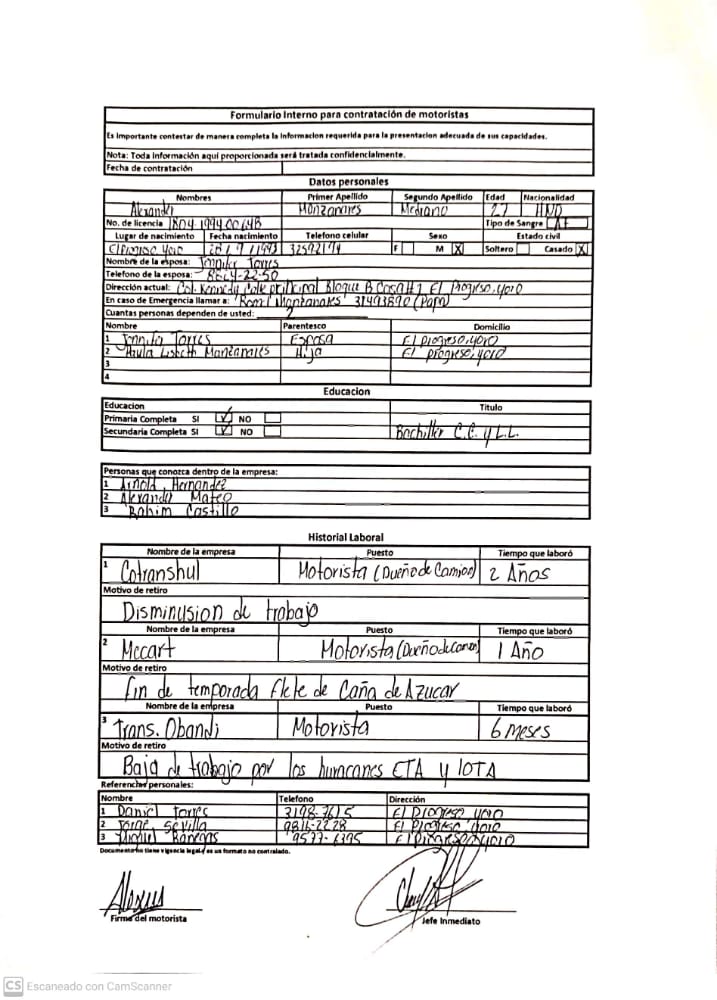 Formulario Interno para contratación de motoristas
Es Importante contestar de manera completa la informacion requerida para la presentacion adecuada de sus capacidades.
Nota: Toda información aquí proporcionada será tratada confidencialmente.
Fecha de contratación
Datos personales
Nombres Primer Apellido Segundo Apellido Edad Nacionalidad
Alexander Manzanares Medrano 27 HND
No. de licencia Tipo de Sangre
Lugar de nacimiento Fecha nacimiento Telefono celular Sexo Estado civil
El Progreso Yoro F M X Soltero Casado X
Nombre de la esposa: Jennifer Torres
Telefono de la esposa:
Dirección actual: Col. Kennedy Calle principal Bloque B Casa #1 El Progreso, yoro
En caso de Emergencia llamar a: Manzanares 31493890 (Papa)
Cuantas personas dependen de usted: 2
Nombre Parentesco Domicilio
1 Jennifer Torres Esposa El progreso, yoro
2 Lisbeth Manzanares Hija El progreso, yoro
3
4
Educacion
Educacion Titulo
Primaria Completa SI NO
Secundaria Completa SI NO Bachiller C.C. y L.L.
Personas que conozca dentro de la empresa:
1 Arnold Hernandez
2 Alexander Mateo
3 Rahim Castillo
Historial Laboral
Nombre de la empresa Puesto Tiempo que laboró
1 Cotranshul Motorista (Dueño de Camion) 2 Años
Motivo de retiro
Disminusion de trabajo
Nombre de la empresa Puesto Tiempo que laboró
2 Mccart Motorista (Dueño de 1 Año
Motivo de retiro
fin de temporada flete de Caña de Azucar
Nombre de la empresa Puesto Tiempo que laboró
3 Trans. Obandi Motorista 6 meses
Motivo de retiro
Baja de trabajo por los huracanes ETA y IOTA
Referencias personales:
Nombre Telefono Dirección
1 Daniel Torres 3198-7615 El Progreso yoro
2 Jorge Sevilla 9816-2228 El Progreso, yoro
3 Miguel Banegas 9577-6395 El Progreso, yoro
Documento no tiene vigencia legal y es un formato no controlado.
Firma del motorista Jefe Inmediato
CS Escaneado con CamScanner